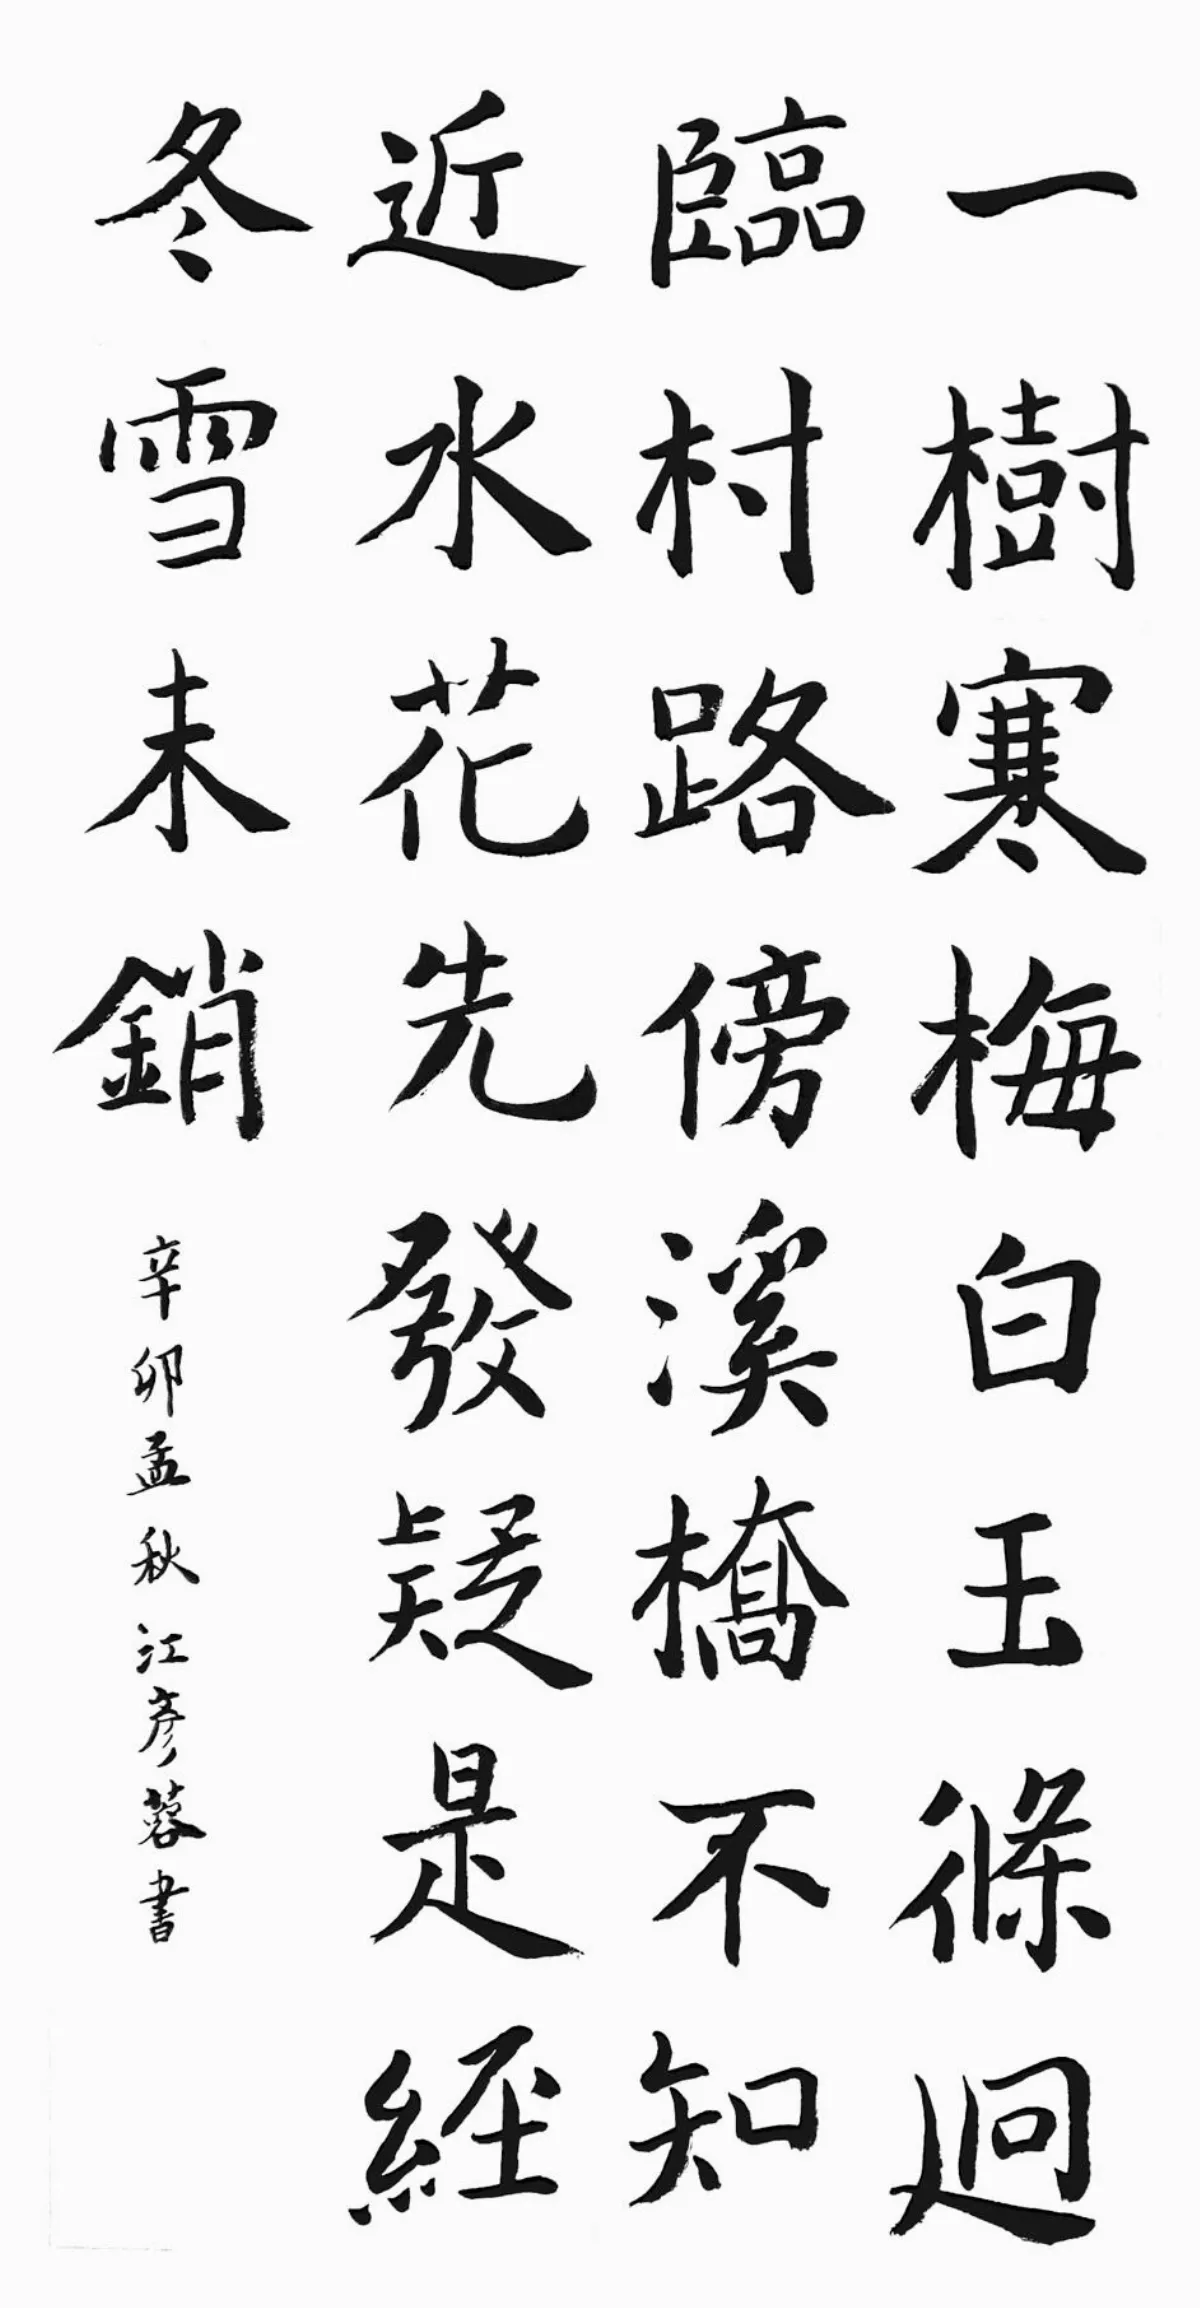 一樹寒梅白玉條迥
臨村路傍溪橋不知
近水花先發疑是經
冬雪未銷
辛卯孟秋江彥蓉書